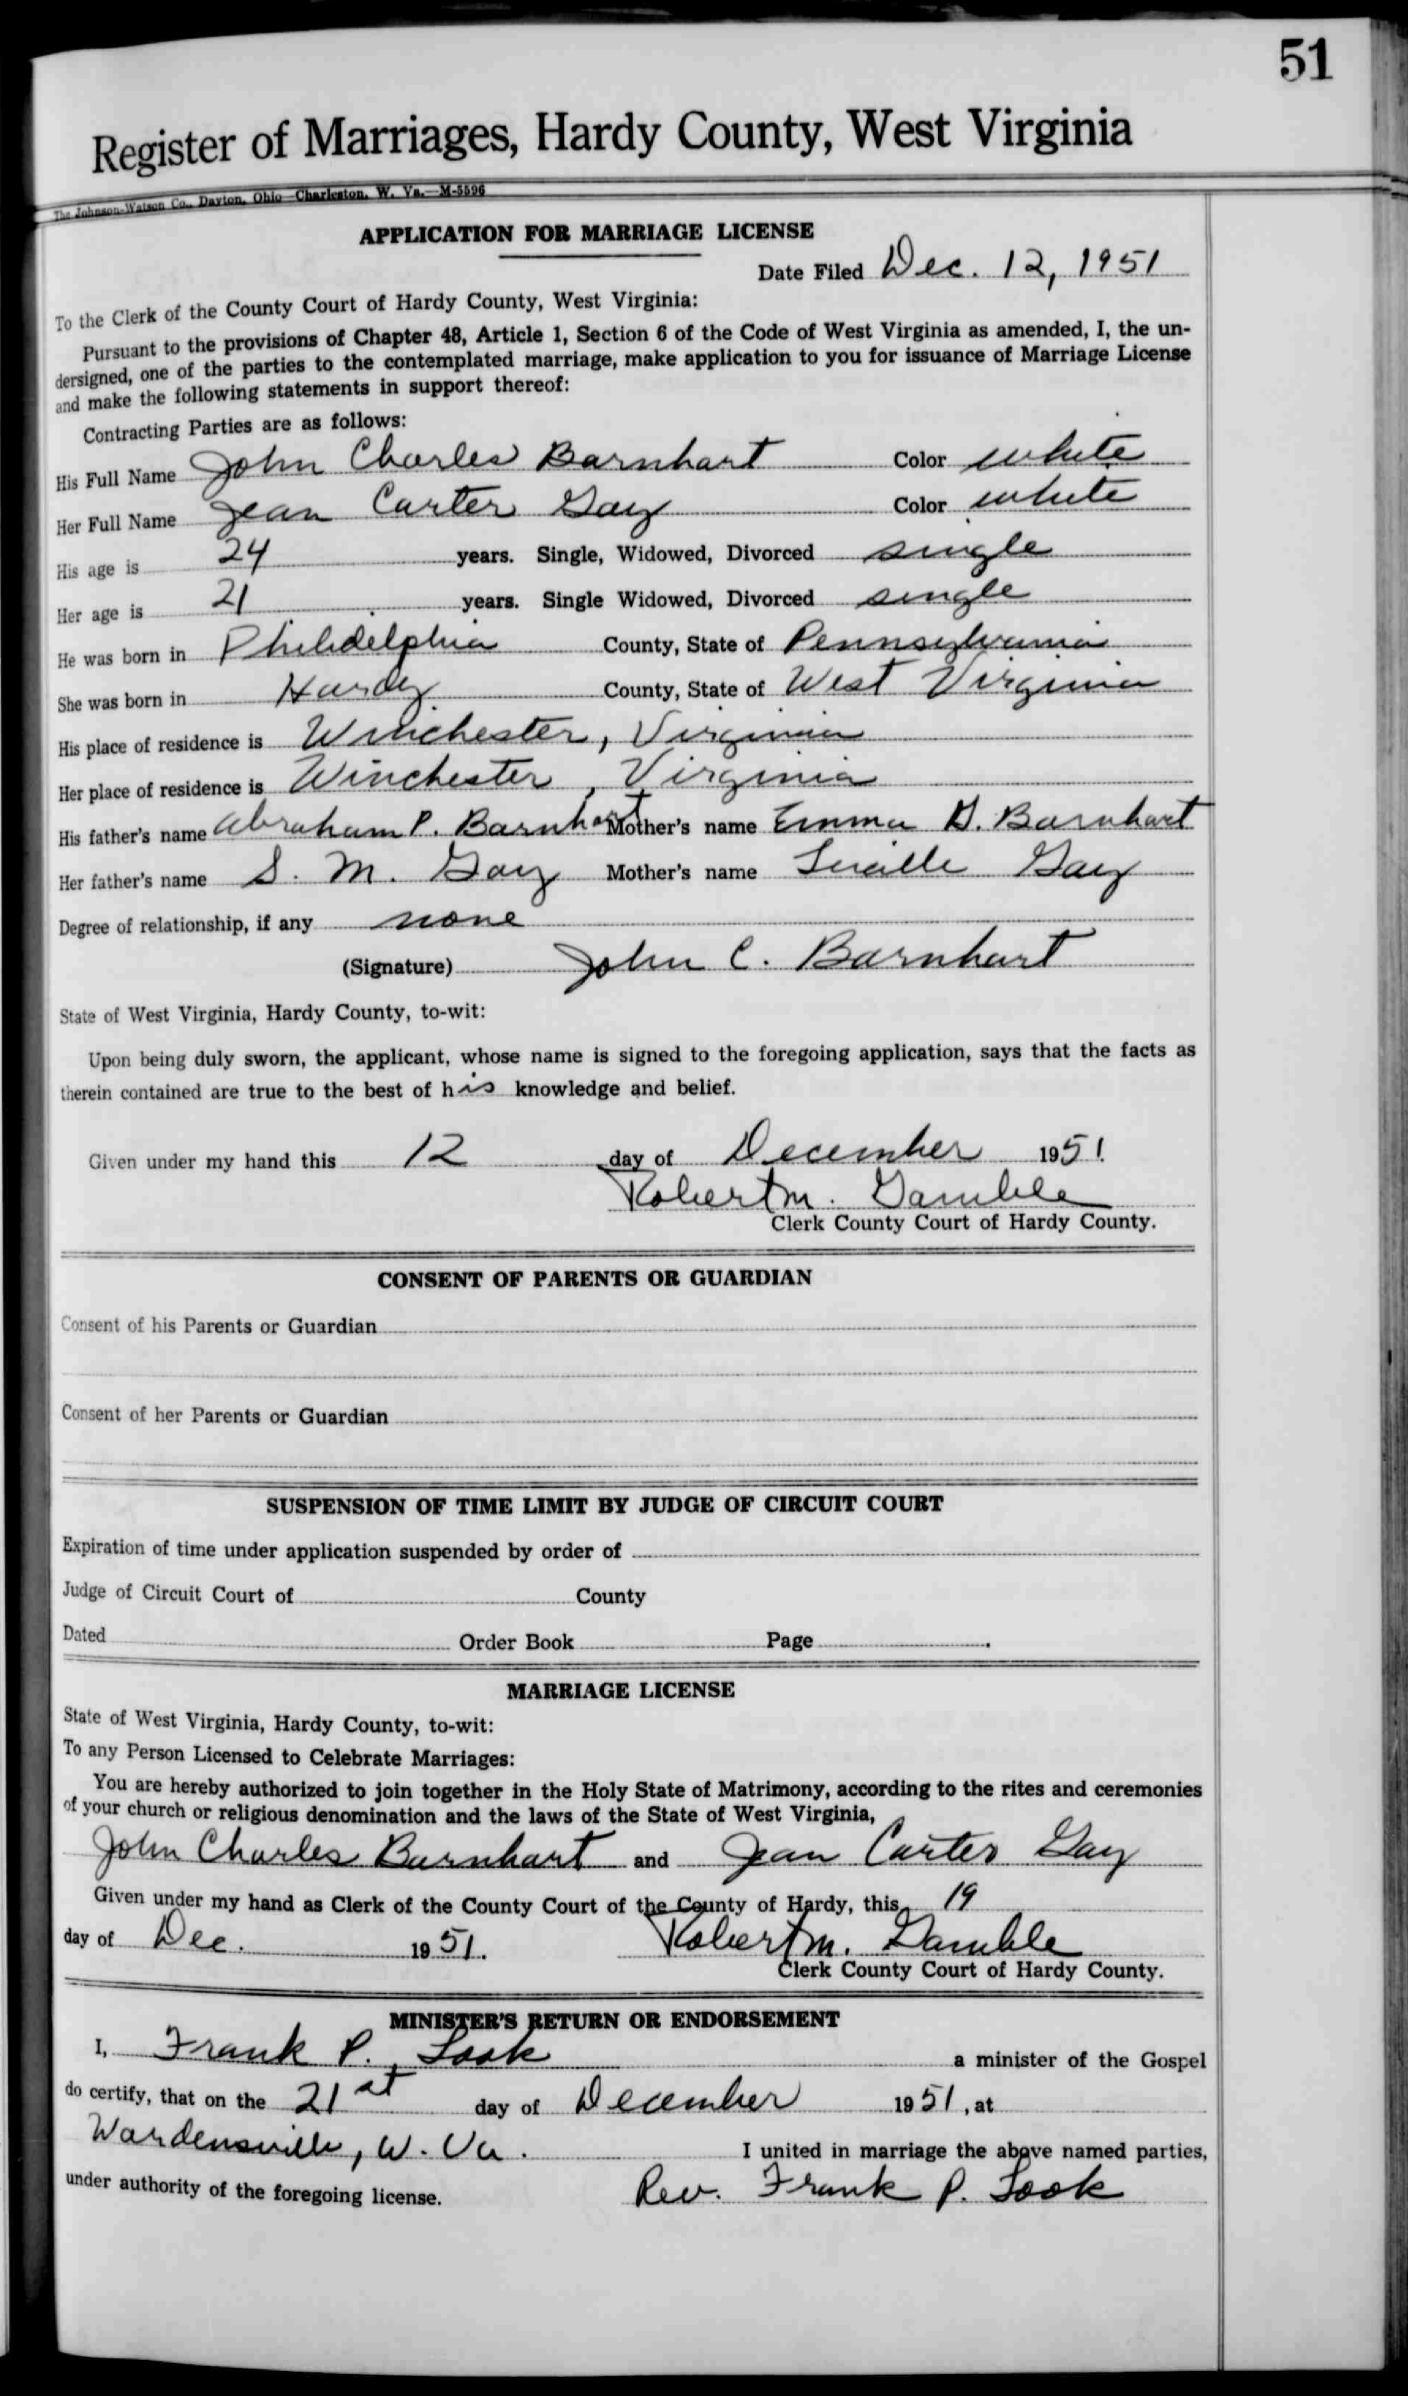 51
Register of Marriages, Hardy County, West Virginia
The Johnson-Watson Co., Dayton, Ohio—Charleston, W. Va.—M-5596
APPLICATION FOR MARRIAGE LICENSE
Date Filed Dec. 12, 1951
To the Clerk of the County Court of Hardy County, West Virginia:
Pursuant to the provisions of Chapter 48, Article 1, Section 6 of the Code of West Virginia as amended, I, the un-
dersigned, one of the parties to the contemplated marriage, make application to you for issuance of Marriage License
and make the following statements in support thereof:
Contracting Parties are as follows:
His Full Name John Charles Barnhart Color white
Her Full Name Jean Carter Gay Color white
His age is 24 years. Single, Widowed, Divorced single
Her age is 21 years. Single Widowed, Divorced single
He was born in Philidelphia County, State of Pennsylvania
She was born in Hardy County, State of West Virginia
His place of residence is Winchester, Virginia
Her place of residence is Winchester, Virginia
His father's name Abraham P. Barnhart Mother's name Emma G. Barnhart
Her father's name S. M. Gay Mother's name Lucille Gay
Degree of relationship, if any none
(Signature) John C. Barnhart
State of West Virginia, Hardy County, to-wit:
Upon being duly sworn, the applicant, whose name is signed to the foregoing application, says that the facts as
therein contained are true to the best of his knowledge and belief.
Given under my hand this 12 day of December 1951.
Robert M. Gamble
Clerk County Court of Hardy County.
CONSENT OF PARENTS OR GUARDIAN
Consent of his Parents or Guardian
Consent of her Parents or Guardian
SUSPENSION OF TIME LIMIT BY JUDGE OF CIRCUIT COURT
Expiration of time under application suspended by order of
Judge of Circuit Court of County
Dated Order Book Page .
MARRIAGE LICENSE
State of West Virginia, Hardy County, to-wit:
To any Person Licensed to Celebrate Marriages:
You are hereby authorized to join together in the Holy State of Matrimony, according to the rites and ceremonies
of your church or religious denomination and the laws of the State of West Virginia,
John Charles Barnhart and Jean Carter Gay
Given under my hand as Clerk of the County Court of the County of Hardy, this 19
day of Dec. 1951.
Robert M. Gamble
Clerk County Court of Hardy County.
MINISTER'S RETURN OR ENDORSEMENT
I, Frank P. Look a minister of the Gospel
do certify, that on the 21st day of December 1951, at
Wardensville, W. Va. I united in marriage the above named parties,
under authority of the foregoing license. Rev. Frank P. Look